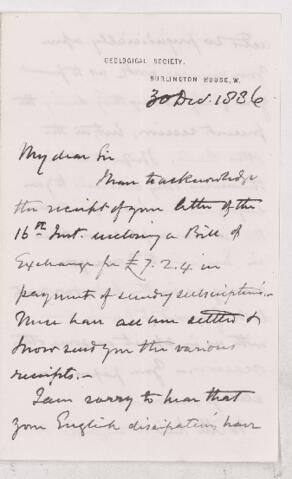 GEOLOGICAL SOCIETY,
BURLINGTON HOUSE, W.
30 Decr. 1886
My dear Sir
I have to acknowledge
the receipt of your letter of the
16th Inst. enclosing a Bill of
Exchange for £7. 2. 4 in
payment of sundry subscriptions.-
These have all been settled &
I now send you the various
receipts.-
I am sorry to hear that
your English dissipations have